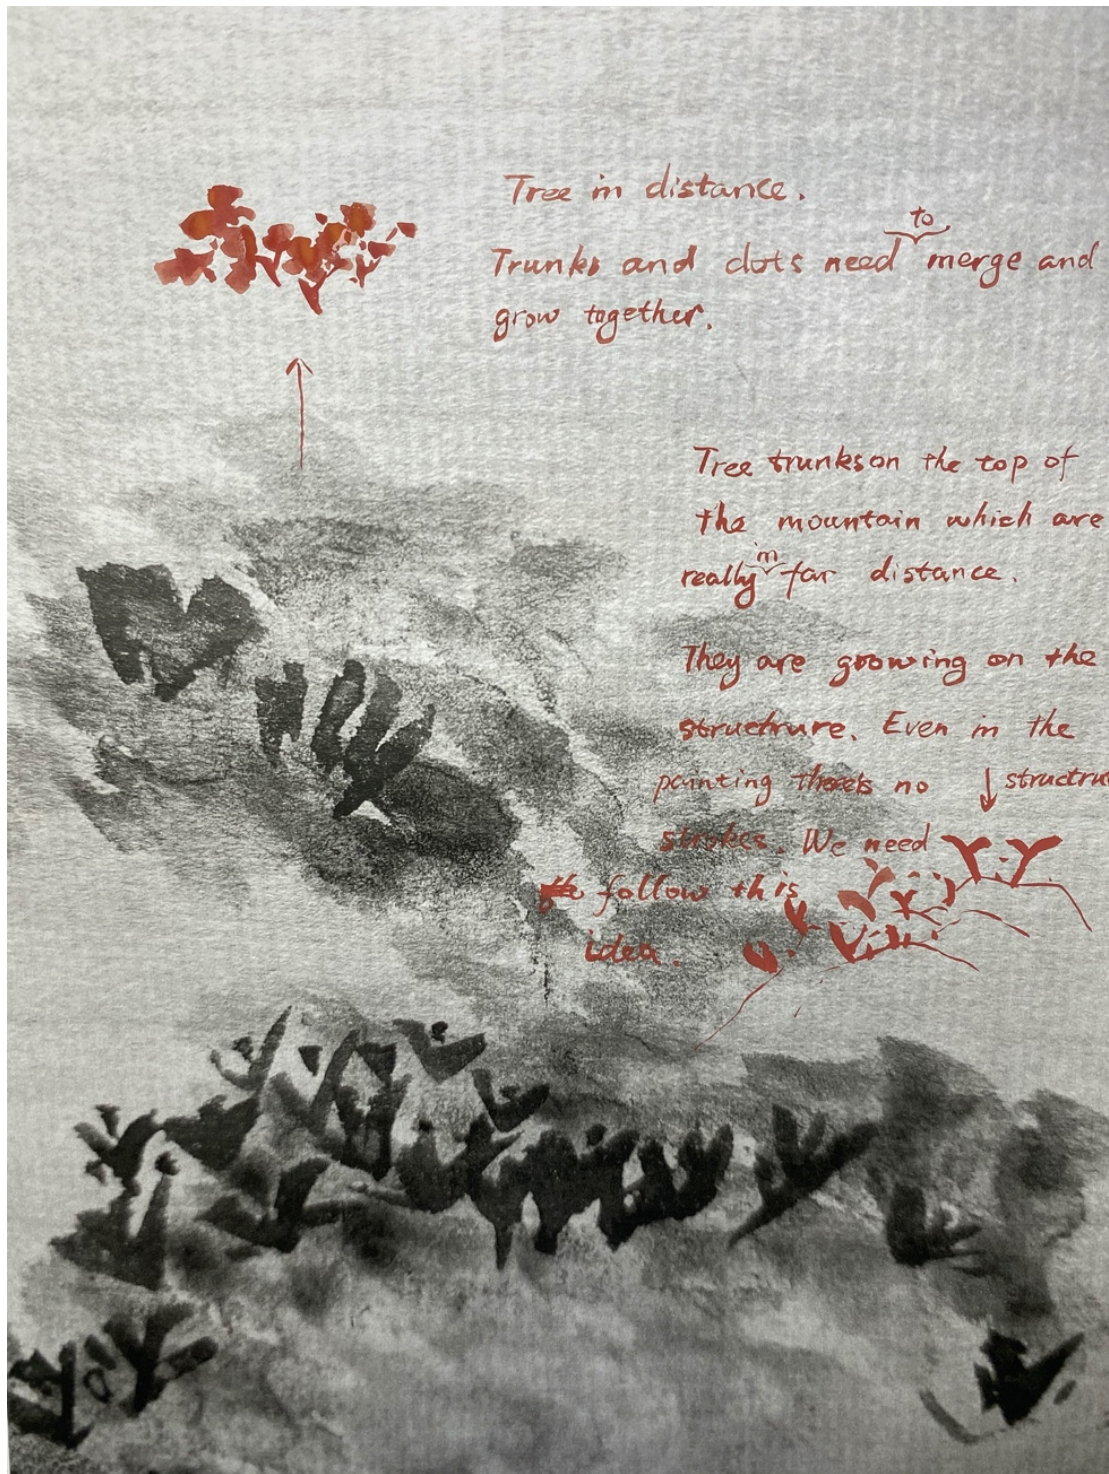 Tree in distance.
to
Trunks and dots need merge and
grow together.
Tree trunks on the top of
the mountain which are
in
really far distance.
They are growing on the
structrure. Even in the
painting there's no
structru
strokes. We need
to follow this
idea.